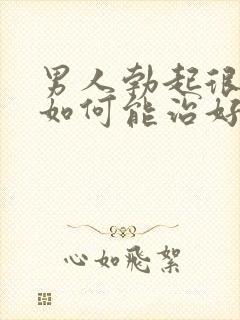 男人勃起很
如何能治好
心如飛絮